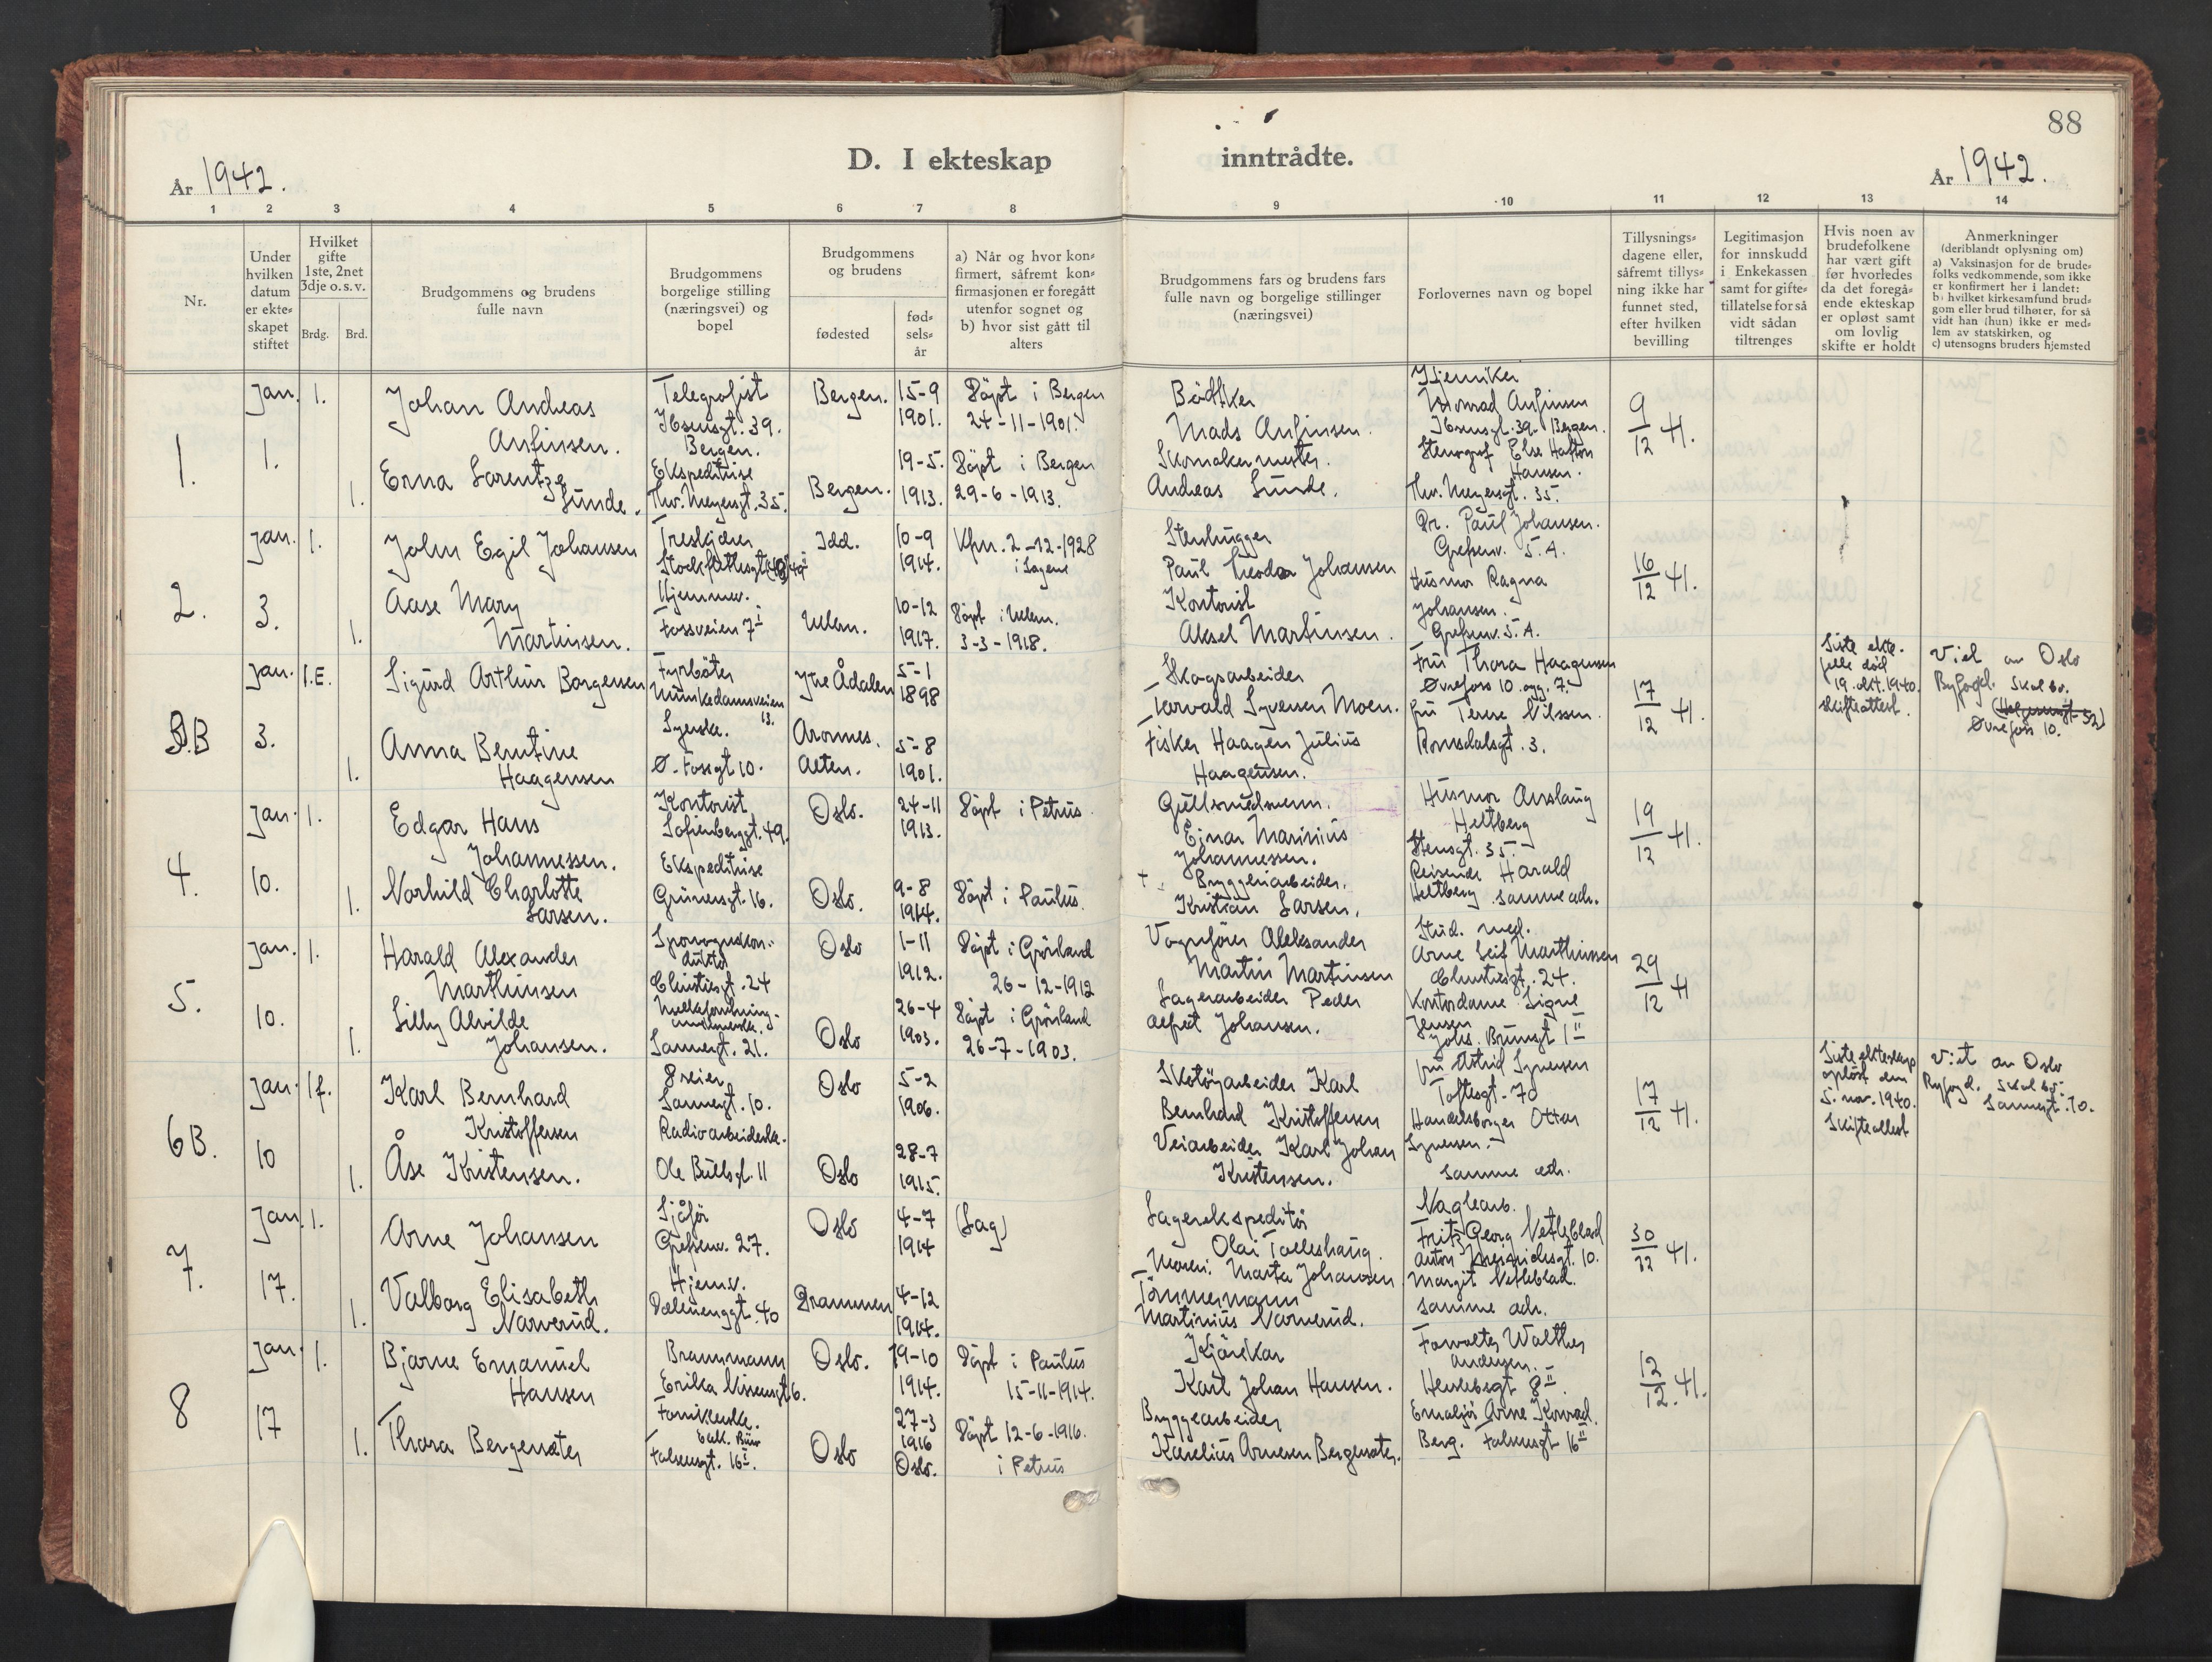 88
D. I ekteskap inntrådte.
År 1942.
År 1942.
1 2 3 4 5 6 7 8 9 10 11 12 13 14
Nr.
Under hvilken datum er ekteskapet stiftet
Hvilket gifte 1ste, 2net 3dje o. s. v.
Brdg. Brd.
Brudgommens og brudens fulle navn
Brudgommens borgelige stilling (næringsvei) og bopel
Brudgommens og brudens
fødested
fødselsår
a) Når og hvor konfirmert, såfremt konfirmasjonen er foregått utenfor sognet og
b) hvor sist gått til alters
Brudgommens fars og brudens fars fulle navn og borgelige stillinger (næringsvei)
Forlovernes navn og bopel
Tillysningsdagene eller, såfremt tillysning ikke har funnet sted, efter hvilken bevilling
Legitimasjon for innskudd i Enkekassen samt for giftetillatelse for så vidt sådan tiltrenges
Hvis noen av brudefolkene har vært gift før hvorledes da det foregående ekteskap er opløst samt om lovlig skifte er holdt
Anmerkninger
(deriblandt oplysning om)
a) Vaksinasjon for de brudefolks vedkommende, som ikke er konfirmert her i landet:
b) hvilket kirkesamfund brudgom eller brud tilhører, for så vidt han (hun) ikke er medlem av statskirken, og
c) utensogns bruders hjemsted
1.
Jan. 1.
1.
Johan Andreas
Anfinsen.
Telegrafist
Ibsensgt. 39.
Bergen.
Bergen.
15-9
1901.
Döpt i Bergen
24-11-1901.
Bödtker
Mads Anfinsen.
Konrad Anfinsen
Ibsensgt. 39. Bergen.
9/12 41.
1.
Erna Larentze
Sunde.
Ekspeditrise
Thv. Meyersgt. 35.
Bergen.
19-5.
1913.
Döpt i Bergen
29-6-1913.
Skomakermester.
Andreas Sunde.
Stenograf Else
Hansen.
Thv. Meyersgt. 35.
2.
Jan. 3.
1.
John Egil Johansen
Treskjærer
Idd.
10-9
1914.
Kfm. 2-12-1928
i Sagene
Stenhugger
Paul Theodor Johansen
Dr. Paul Johansen.
Grefsenv. 5. A.
16/12 41.
1.
Aase Mary
Martinsen.
Hjemmev.
Fossveien 7 I
Ullern.
10-12
1917.
Döpt i Ullern.
3-3-1918.
Kontorist
Aksel Martinsen.
Husmor Ragna
Johansen.
Grefsenv. 5. A.
3B
Jan. 3.
1. E.
Sigurd Arthur Borgersen
Fyrböter
Munkedamsveien
13.
Ytre Ådalen
5-1
1898
Skogsarbeider
Torvald Syversen Moen.
Fru Thora Haagensen
Övrefoss 10. opg. 7.
17/12 41.
Siste ekte-
felle död
19. okt. 1940.
skifteattest.
Viet av Oslo
Byfogd. Skal bo.
Övrefoss 10.
1.
Anna Berntine
Haagensen
Syerske.
Ø. Fossgt 10.
Aronnes.
Alten.
5-8
1901.
Fisker Haagen Julius
Haagensen.
Fru Terese Nilssen.
Romsdalsgt. 3.
4.
Jan. 10.
1.
Edgar Hans
Johannessen.
Kontorist
Sofienberggt. 49.
Oslo.
24-11
1913.
Döpt i Petrus.
Gullsmedsvenn.
Einar Marinius
Johannessen.
Husmor Aaslaug
Heltberg
Stensgt. 35.
19/12 41.
1.
Norhild Charlotte
Larsen.
Ekspeditrise
Grünersgt. 16.
Oslo.
9-8
1914.
Döpt i Paulus.
+ Bryggeriarbeider.
Kristian Larsen.
Reisende Harald
Heltberg samme adr.
5.
Jan. 10.
1.
Harald Alexander
Marthinsen
Sporvognskon-
duktör
Christiesgt. 24
Oslo
1-11
1912.
Döpt i Grönland
26-12-1912
Vognförer Aleksander
Martin Martinsen
Stud. med.
Arne Leif Marthinsen
Christiesgt. 24.
29/12 41
1.
Lilly Alvilde
Johansen.
Sannergt. 21.
Oslo
26-4
1903.
Döpt i Grönland
26-7-1903.
Lagerarbeider Peder
Alfred Johansen.
Kontordame Signe
Jensen
Johs. Brunsgt 1 II
6B.
Jan. 10
1 f.
Karl Bernhard
Kristoffersen
Dreier
Sannergt. 10.
Oslo
5-2
1906.
Skotöyarbeider Karl
Bernhard Kristoffersen
Fru Astrid Syversen
Toftesgt. 70
17/12 41.
Siste ekteskap
oplöst den
5. nov. 1940.
Skifteattest
Viet av Oslo
Byfogd. Skal bo.
Sannergt. 10.
1.
Åse Kristensen.
Radioarbeiderske.
Ole Bullsgt. 11
Oslo
28-7
1915.
Veiarbeider Karl Johan
Kristensen.
Handelsborger Ottar
Syversen.
samme adr.
7.
Jan. 17.
1.
Arne Johansen
Sjåför
Grefsenv. 27.
Oslo
4-7
1914
(Sag)
Lagerekspeditör
Olai Tolleshaug.
Moren: Marta Johansen
Naglearb.
Fritz Georg Netleblad
30/12 41.
1.
Valborg Elisabeth
Narverud.
Hjemv.
Dælenenggt. 40
Drammen
4-12
1914.
Tömmermann
Martinius Narverud.
Margit Netleblad.
samme adr.
8
Jan. 17
1.
Bjarne Emanuel
Hansen
Brannmann
Erika Nissensgt 6.
Oslo.
19-10
1914.
Döpt i Paulus
15-11-1914.
Kjörekar
Karl Johan Hansen.
Forvalter Walther
Andersen.
Herslebsgt 8 II.
12/12. 41.
1.
Thora Bergersæter
Falsensgt. 16 I.
Oslo
27-3
1916
Oslo.
Döpt 12-6-1916.
i Petrus
Bryggearbeider
Karelius Arnesen Bergersæter.
Emaljör Arne Konrad
Berg. Falsensgt 16 II